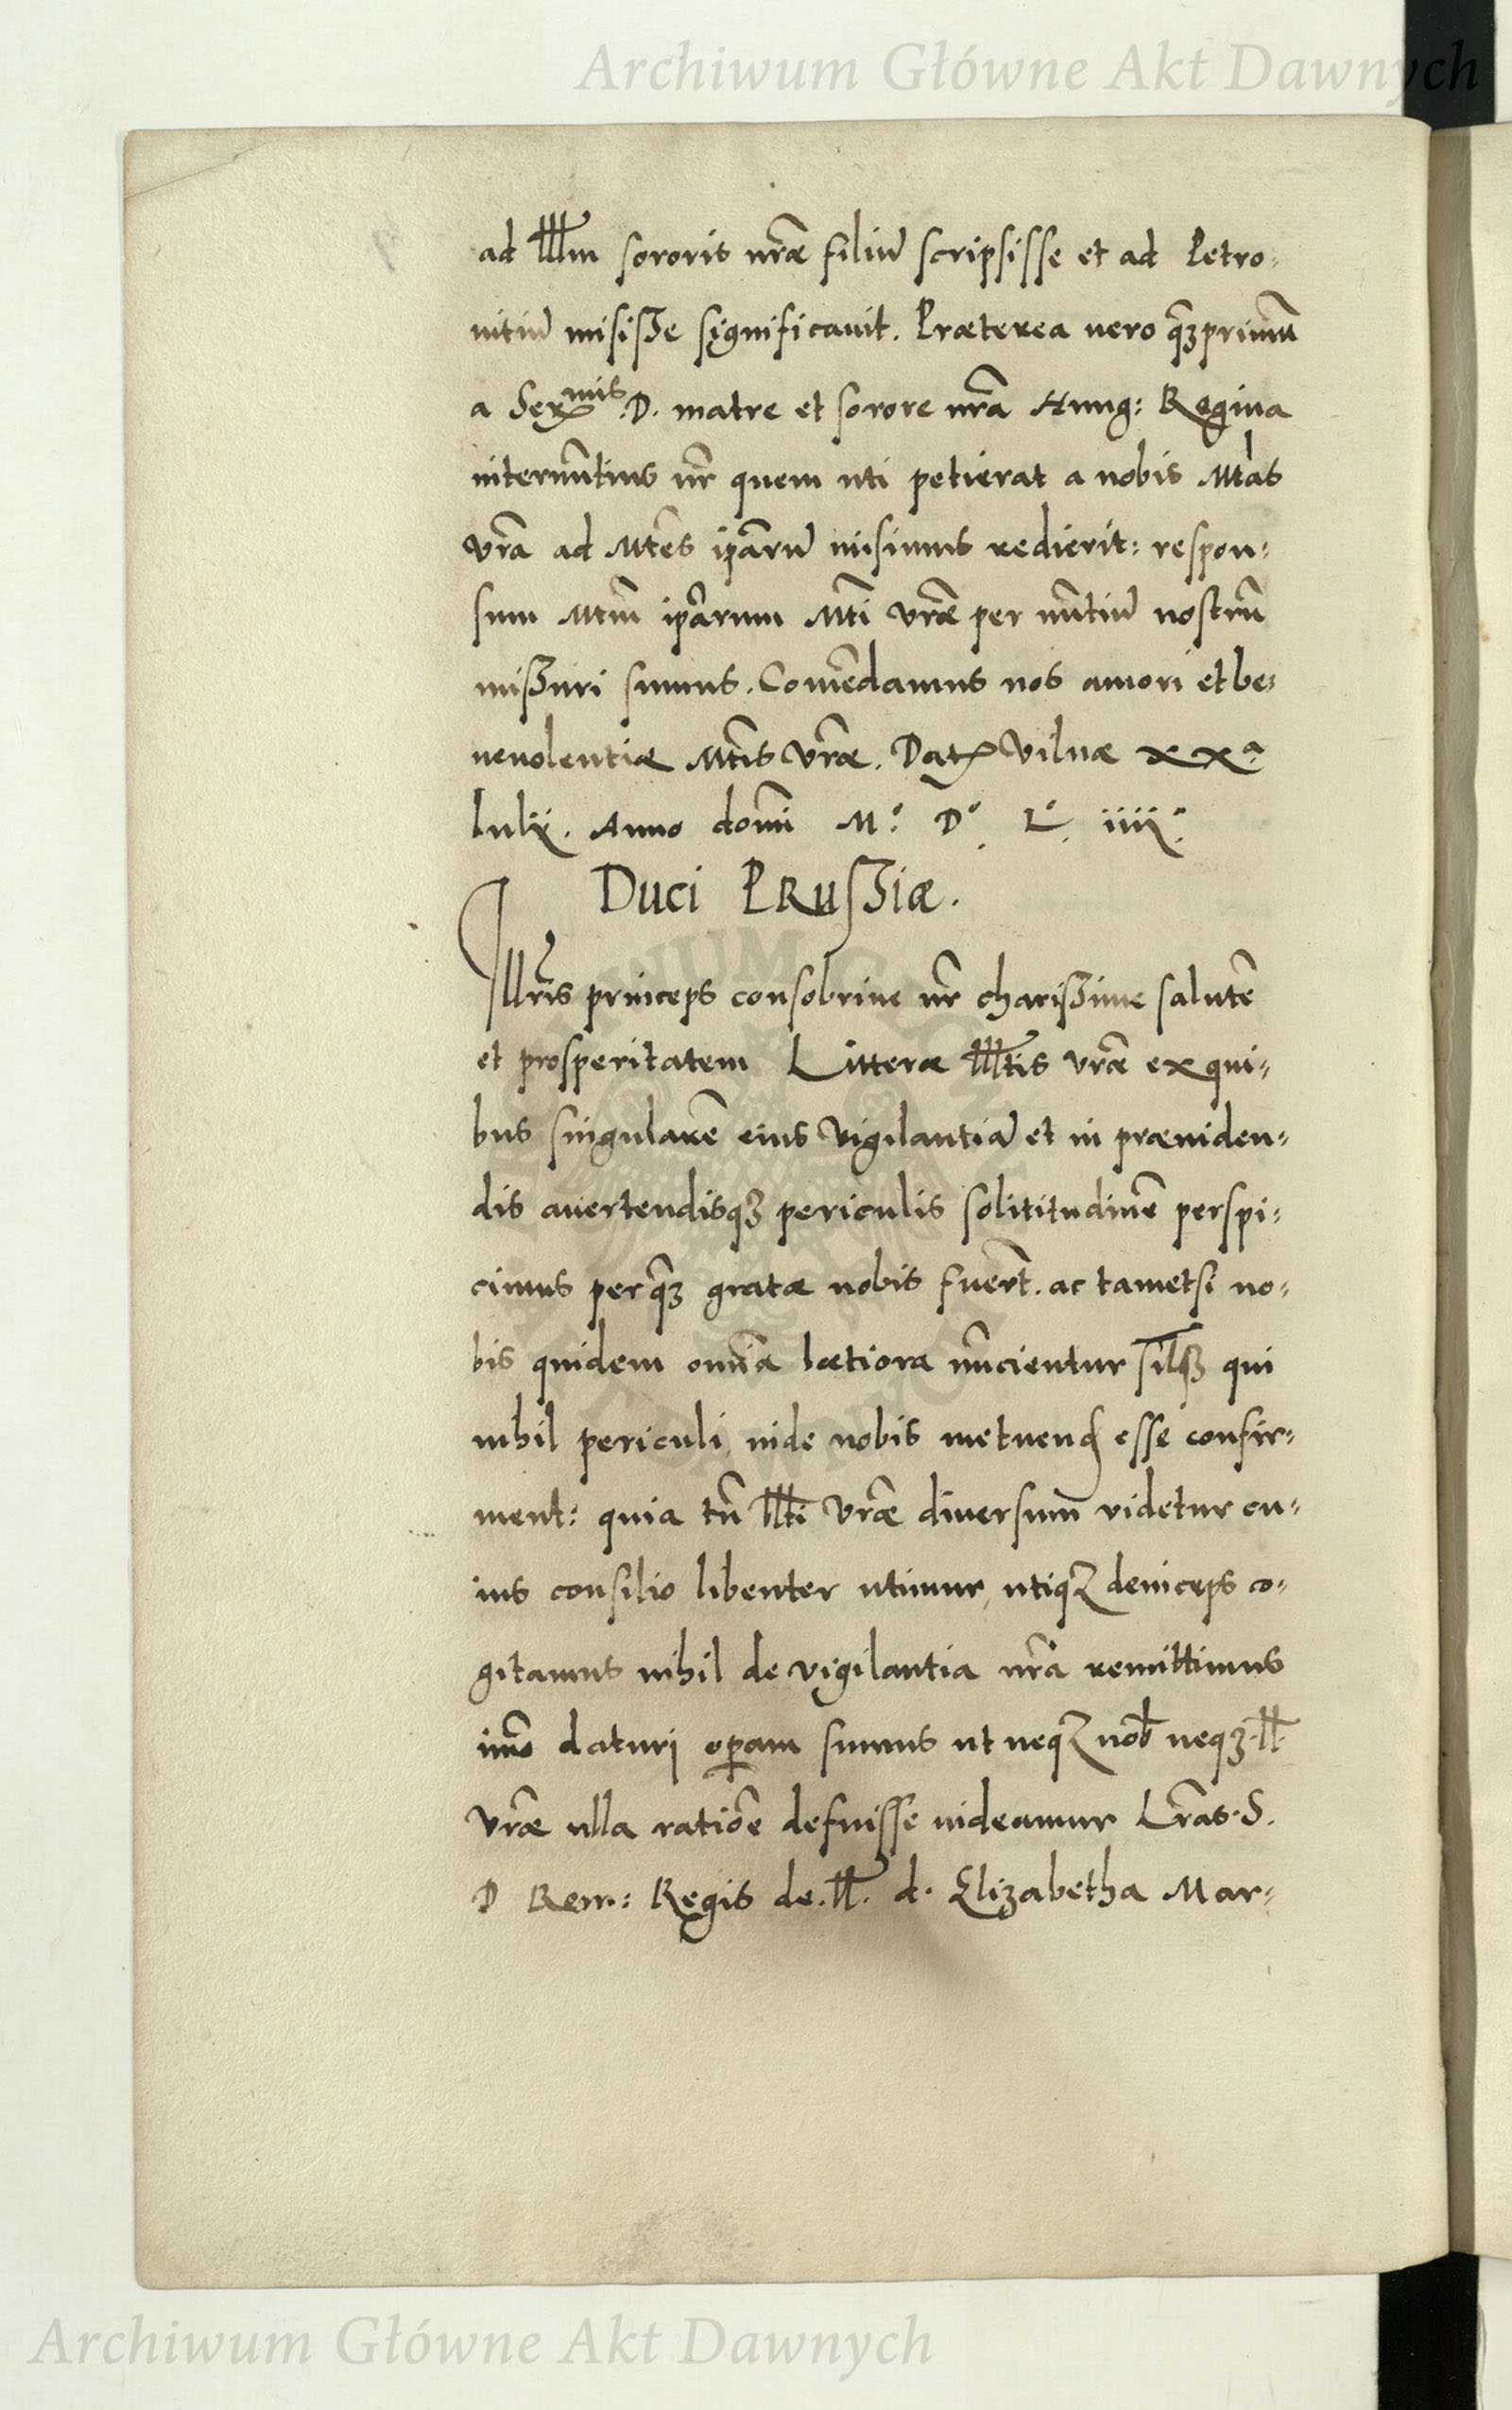 Archiwum Główne Akt Dawnych
ad Illm̄ sororis nr̄æ filiū scripsisse et ad Petro-
vitiū misisse significauit. Præterea uero q̄ꝫprimū
a Serᵐⁱˢ D. matre et sorore nr̄a Hung: Regina
internūtius nr̄ quem uti petierat a nobis Mtas
vr̄a ad Mtēs ipārū misimus redierit: respon-
sum Mtm̄ ipārum Mtī vr̄æ per nūtiū nostrū
missuri sumus. Comēdamus nos amori et be-
neuolentiæ Mtīs vr̄æ. Dat. Vilnæ xxᵃ
Iulij. Anno domī M.º D.º L.º iiij.º
Duci Prussiæ.
Illr̄is princeps consobrine nr̄ charissime salutē
et prosperitatem Litteræ Illtīs vr̄æ ex qui-
bus singularē eius vigilantiā et in præuiden-
dis auertendisqꝫ periculis solititudinē perspi-
cimus perq̄ꝫ gratæ nobis fuert̄. ac tametsi no-
bis quidem omīa lætiora nūcientur qui
nihil periculi inde nobis metuend esse confir-
ment: quia tn̄ Illtī vr̄æ diuersum videtur cu-
ius consilio libenter utimur, utiqꝫ deinceps co-
gitamus nihil de vigilantia nr̄a remittimus
imō daturi operam sumus ut neqꝫ nob̄ neqꝫ Ill.
vr̄æ ulla ratiōe defuisse uideamur Lr̄as. S.
D Rom: Regis de Ill. d. Elizabetha Mar-
Archiwum Główne Akt Dawnych